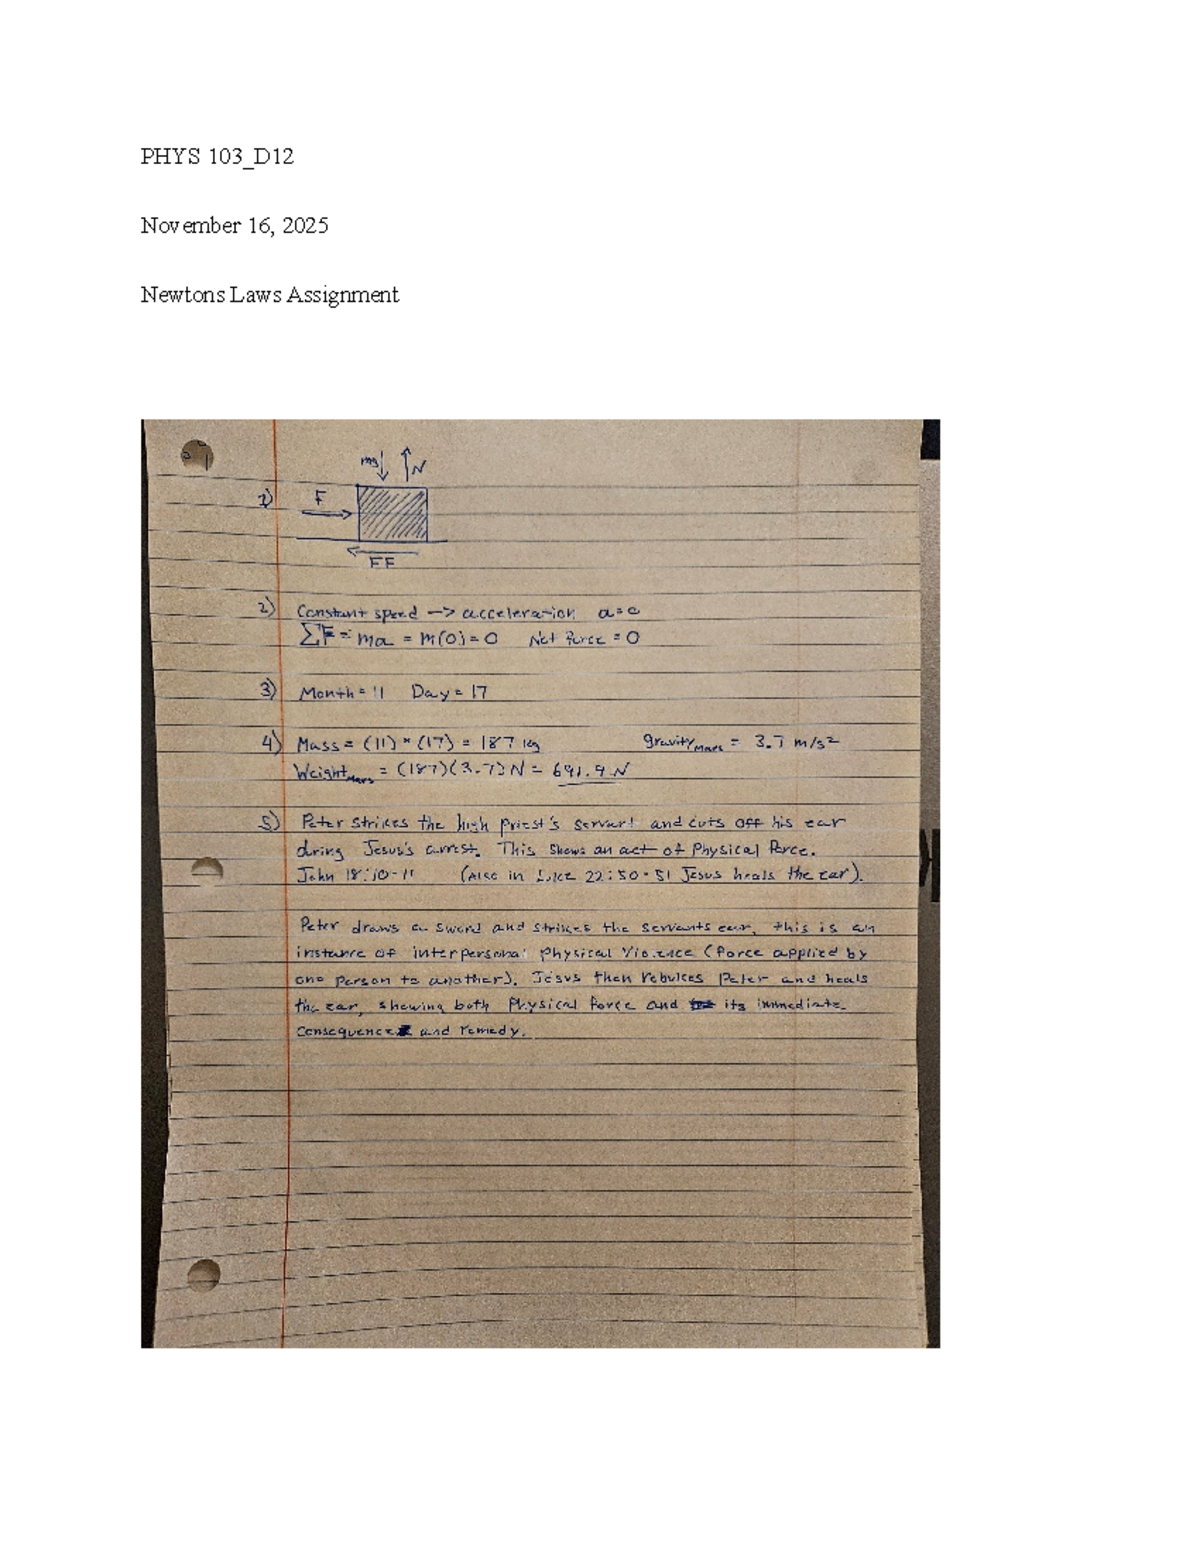 PHYS 103_D12
November 16, 2025
Newtons Laws Assignment
mg N
1) F
FF
2) Constant speed -> acceleration a=0
ΣF = ma = m(0) = 0 Net Force = 0
3) Month = 11 Day = 17
4) Mass = (11) * (17) = 187 kg gravity Mars = 3.7 m/s²
Weight Mars = (187)(3.7)N = 691.9 N
5) Peter strikes the high priest's servant and cuts off his ear
dring Jesus's arrest. This shows an act of Physical Force.
John 18:10-11 (Also in Luke 22:50-51 Jesus heals the ear).
Peter draws a sword and strikes the servants ear, this is an
instance of interpersonal Physical Violence (Force applied by
one person to another). Jesus then rebukes Peter and heals
the ear, showing both Physical Force and its immediate
Consequence and remedy.